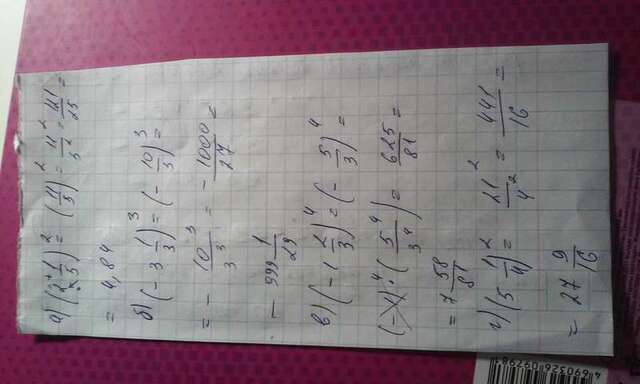 а) (2 1/5)² = (11/5)² = 11²/5² = 121/25 =
= 4,84
б) (-3 1/3)³ = (-10/3)³ =
= - 10³/3³ = - 1000/27 =
- 999 1/29
в) (-1 2/3)⁴ = (-5/3)⁴ =
(-1)⁴ · (5⁴/3⁴) = 625/81 =
= 7 58/81
г) (5 1/4)² = 21²/4² = 441/16 =
= 27 9/16
4690326092981